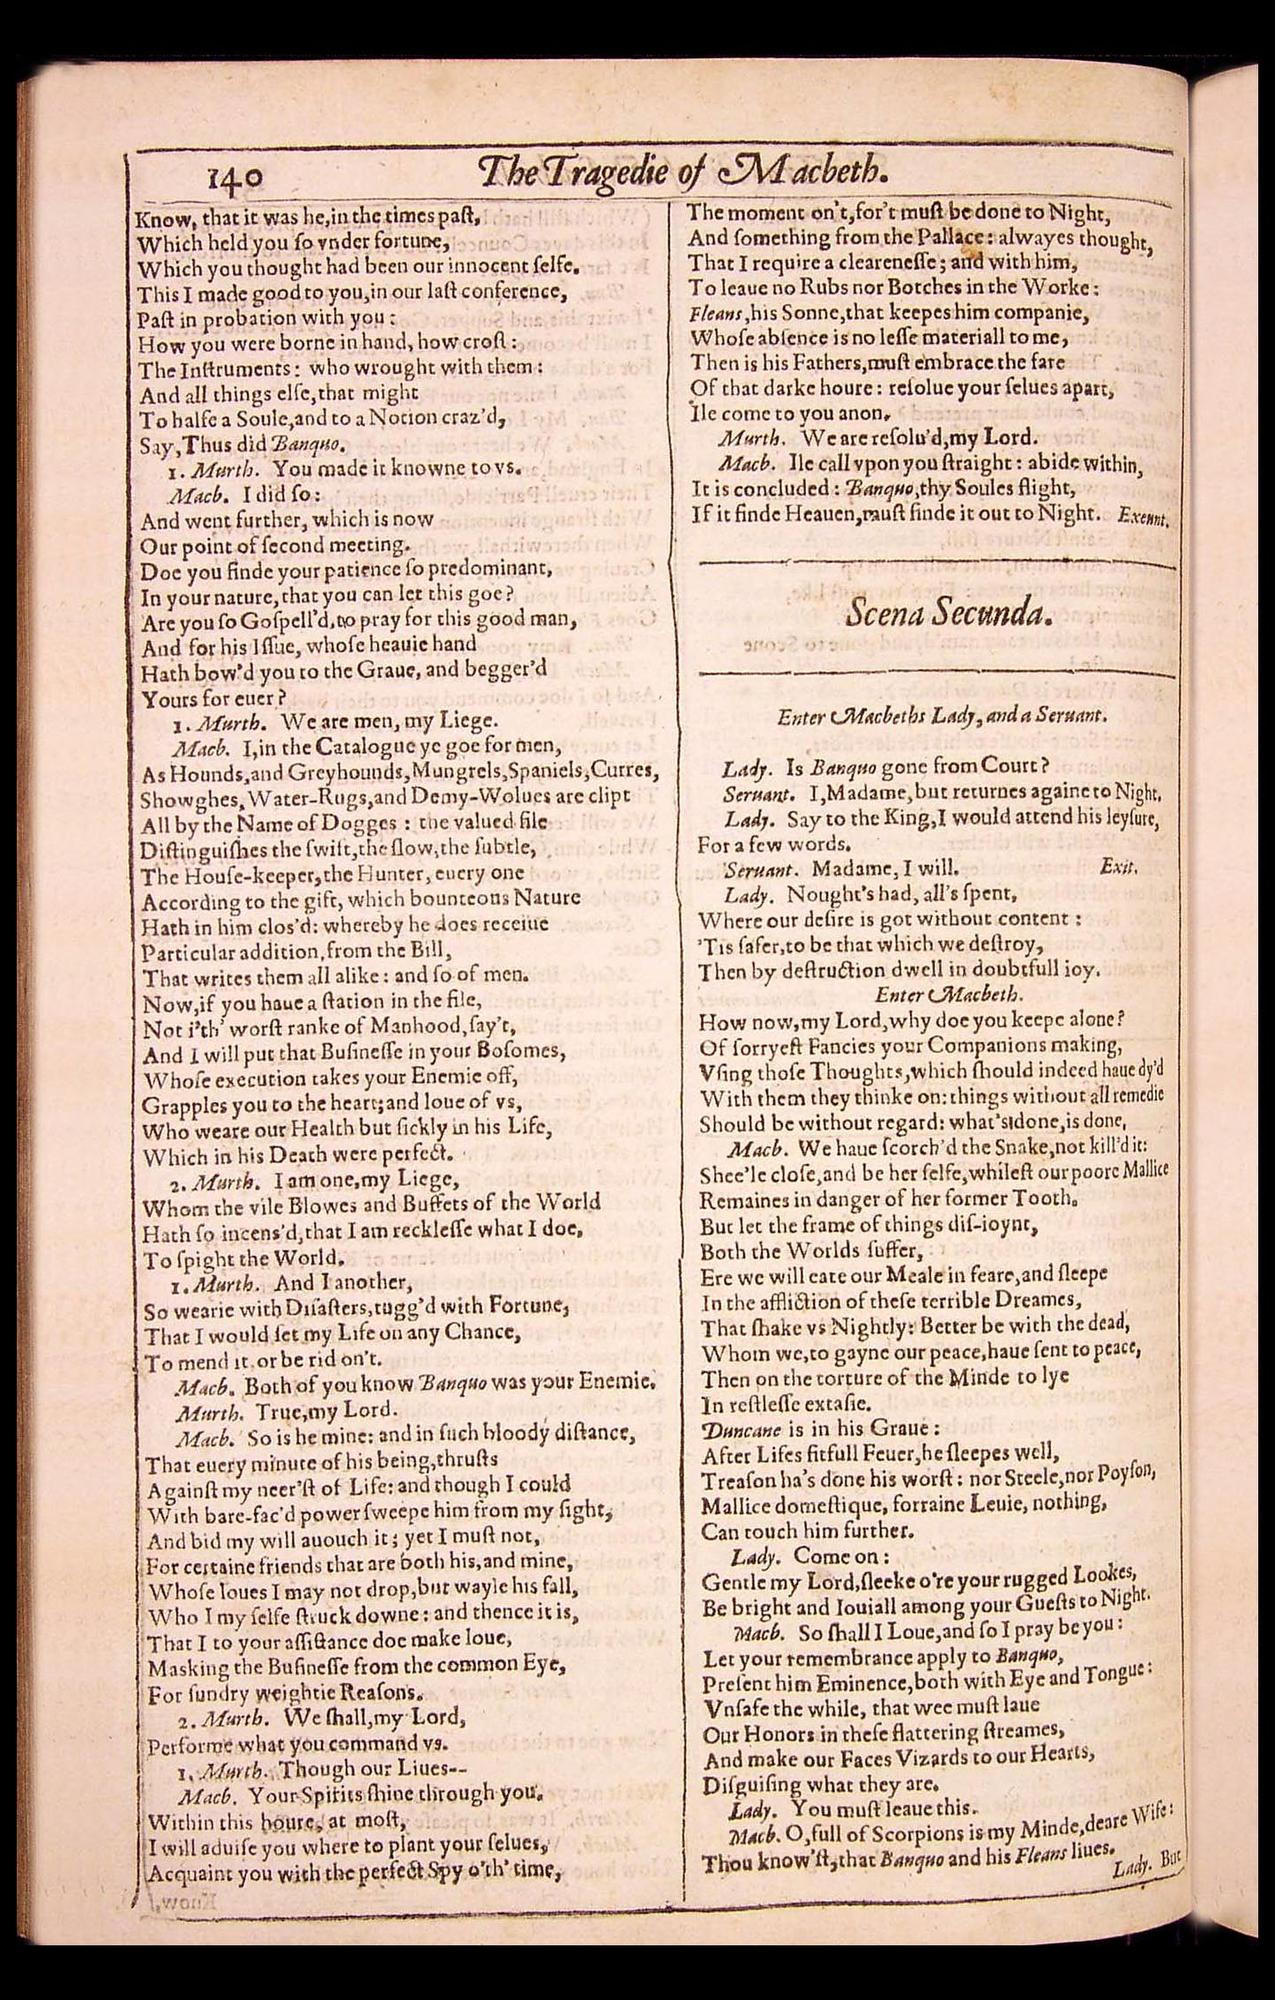 140
The Tragedie of Macbeth.
Know, that it was he,in the times paſt,
Which held you ſo vnder fortune,
Which you thought had been our innocent ſelfe.
This I made good to you,in our laſt conference,
Paſt in probation with you:
How you were borne in hand, how croſt:
The Inſtruments: who wrought with them:
And all things elſe,that might
To halfe a Soule,and to a Notion craz'd,
Say,Thus did Banquo.
1. Murth. You made it knowne to vs.
Macb. I did ſo:
And went further, which is now
Our point of ſecond meeting.
Doe you finde your patience ſo predominant,
In your nature,that you can let this goe?
Are you ſo Goſpell'd,to pray for this good man,
And for his Iſſue, whoſe heauie hand
Hath bow'd you to the Graue, and begger'd
Yours for euer?
1. Murth. We are men, my Liege.
Macb. I,in the Catalogue ye goe for men,
As Hounds,and Greyhounds,Mungrels,Spaniels,Curres,
Showghes,Water-Rugs,and Demy-Wolues are clipt
All by the Name of Dogges: the valued file
Diſtinguiſhes the ſwift,the ſlow,the ſubtle,
The Houſe-keeper,the Hunter, euery one
According to the gift, which bounteous Nature
Hath in him clos'd: whereby he does receiue
Particular addition,from the Bill,
That writes them all alike: and ſo of men.
Now,if you haue a ſtation in the file,
Not i'th' worſt ranke of Manhood,ſay't,
And I will put that Buſineſſe in your Boſomes,
Whoſe execution takes your Enemie off,
Grapples you to the heart;and loue of vs,
Who weare our Health but ſickly in his Life,
Which in his Death were perfect.
2. Murth. I am one,my Liege,
Whom the vile Blowes and Buffets of the World
Hath ſo incens'd,that I am reckleſſe what I doe,
To ſpight the World.
1. Murth. And I another,
So wearie with Diſaſters,tugg'd with Fortune,
That I would ſet my Life on any Chance,
To mend it,or be rid on't.
Macb. Both of you know Banquo was your Enemie.
Murth. True,my Lord.
Macb. So is he mine: and in ſuch bloody diſtance,
That euery minute of his being,thruſts
Againſt my neer'ſt of Life: and though I could
With bare-fac'd power ſweepe him from my ſight,
And bid my will auouch it; yet I muſt not,
For certaine friends that are both his,and mine,
Whoſe loues I may not drop,but wayle his fall,
Who I my ſelfe ſtruck downe: and thence it is,
That I to your aſſiſtance doe make loue,
Masking the Buſineſſe from the common Eye,
For ſundry weightie Reaſons.
2. Murth. We ſhall,my Lord,
Performe what you command vs.
1. Murth. Though our Liues--
Macb. Your Spirits ſhine through you.
Within this houre, at moſt,
I will aduiſe you where to plant your ſelues,
Acquaint you with the perfect Spy o'th' time,
The moment on't,for't muſt be done to Night,
And ſomething from the Pallace: alwayes thought,
That I require a cleareneſſe; and with him,
To leaue no Rubs nor Botches in the Worke:
Fleans,his Sonne,that keepes him companie,
Whoſe abſence is no leſſe materiall to me,
Then is his Fathers,muſt embrace the fate
Of that darke houre: reſolue your ſelues apart,
Ile come to you anon.
Murth. We are reſolu'd,my Lord.
Macb. Ile call vpon you ſtraight: abide within,
It is concluded: Banquo,thy Soules flight,
If it finde Heauen,muſt finde it out to Night. Exeunt.
Scena Secunda.
Enter Macbeths Lady, and a Seruant.
Lady. Is Banquo gone from Court?
Seruant. I,Madame,but returnes againe to Night.
Lady. Say to the King,I would attend his leyſure,
For a few words.
Seruant. Madame, I will. Exit.
Lady. Nought's had, all's ſpent,
Where our deſire is got without content:
'Tis ſafer,to be that which we deſtroy,
Then by deſtruction dwell in doubtfull ioy.
Enter Macbeth.
How now,my Lord,why doe you keepe alone?
Of ſorryeſt Fancies your Companions making,
Vſing thoſe Thoughts,which ſhould indeed haue dy'd
With them they thinke on: things without all remedie
Should be without regard: what's done,is done.
Macb. We haue ſcorch'd the Snake,not kill'd it:
Shee'le cloſe,and be her ſelfe,whileſt our poore Mallice
Remaines in danger of her former Tooth.
But let the frame of things diſ-ioynt,
Both the Worlds ſuffer,
Ere we will eate our Meale in feare,and ſleepe
In the affliction of theſe terrible Dreames,
That ſhake vs Nightly: Better be with the dead,
Whom we,to gayne our peace,haue ſent to peace,
Then on the torture of the Minde to lye
In reſtleſſe extaſie.
Duncane is in his Graue:
After Lifes fitfull Feuer,he ſleepes well,
Treaſon ha's done his worſt: nor Steele,nor Poyſon,
Mallice domeſtique, forraine Leuie, nothing,
Can touch him further.
Lady. Come on:
Gentle my Lord,ſleeke o're your rugged Lookes,
Be bright and Iouiall among your Gueſts to Night.
Macb. So ſhall I Loue,and ſo I pray be you:
Let your remembrance apply to Banquo,
Preſent him Eminence,both with Eye and Tongue:
Vnſafe the while, that wee muſt laue
Our Honors in theſe flattering ſtreames,
And make our Faces Vizards to our Hearts,
Diſguiſing what they are.
Lady. You muſt leaue this.
Macb. O,full of Scorpions is my Minde,deare Wife:
Thou know'ſt,that Banquo and his Fleans liues.
Lady. But